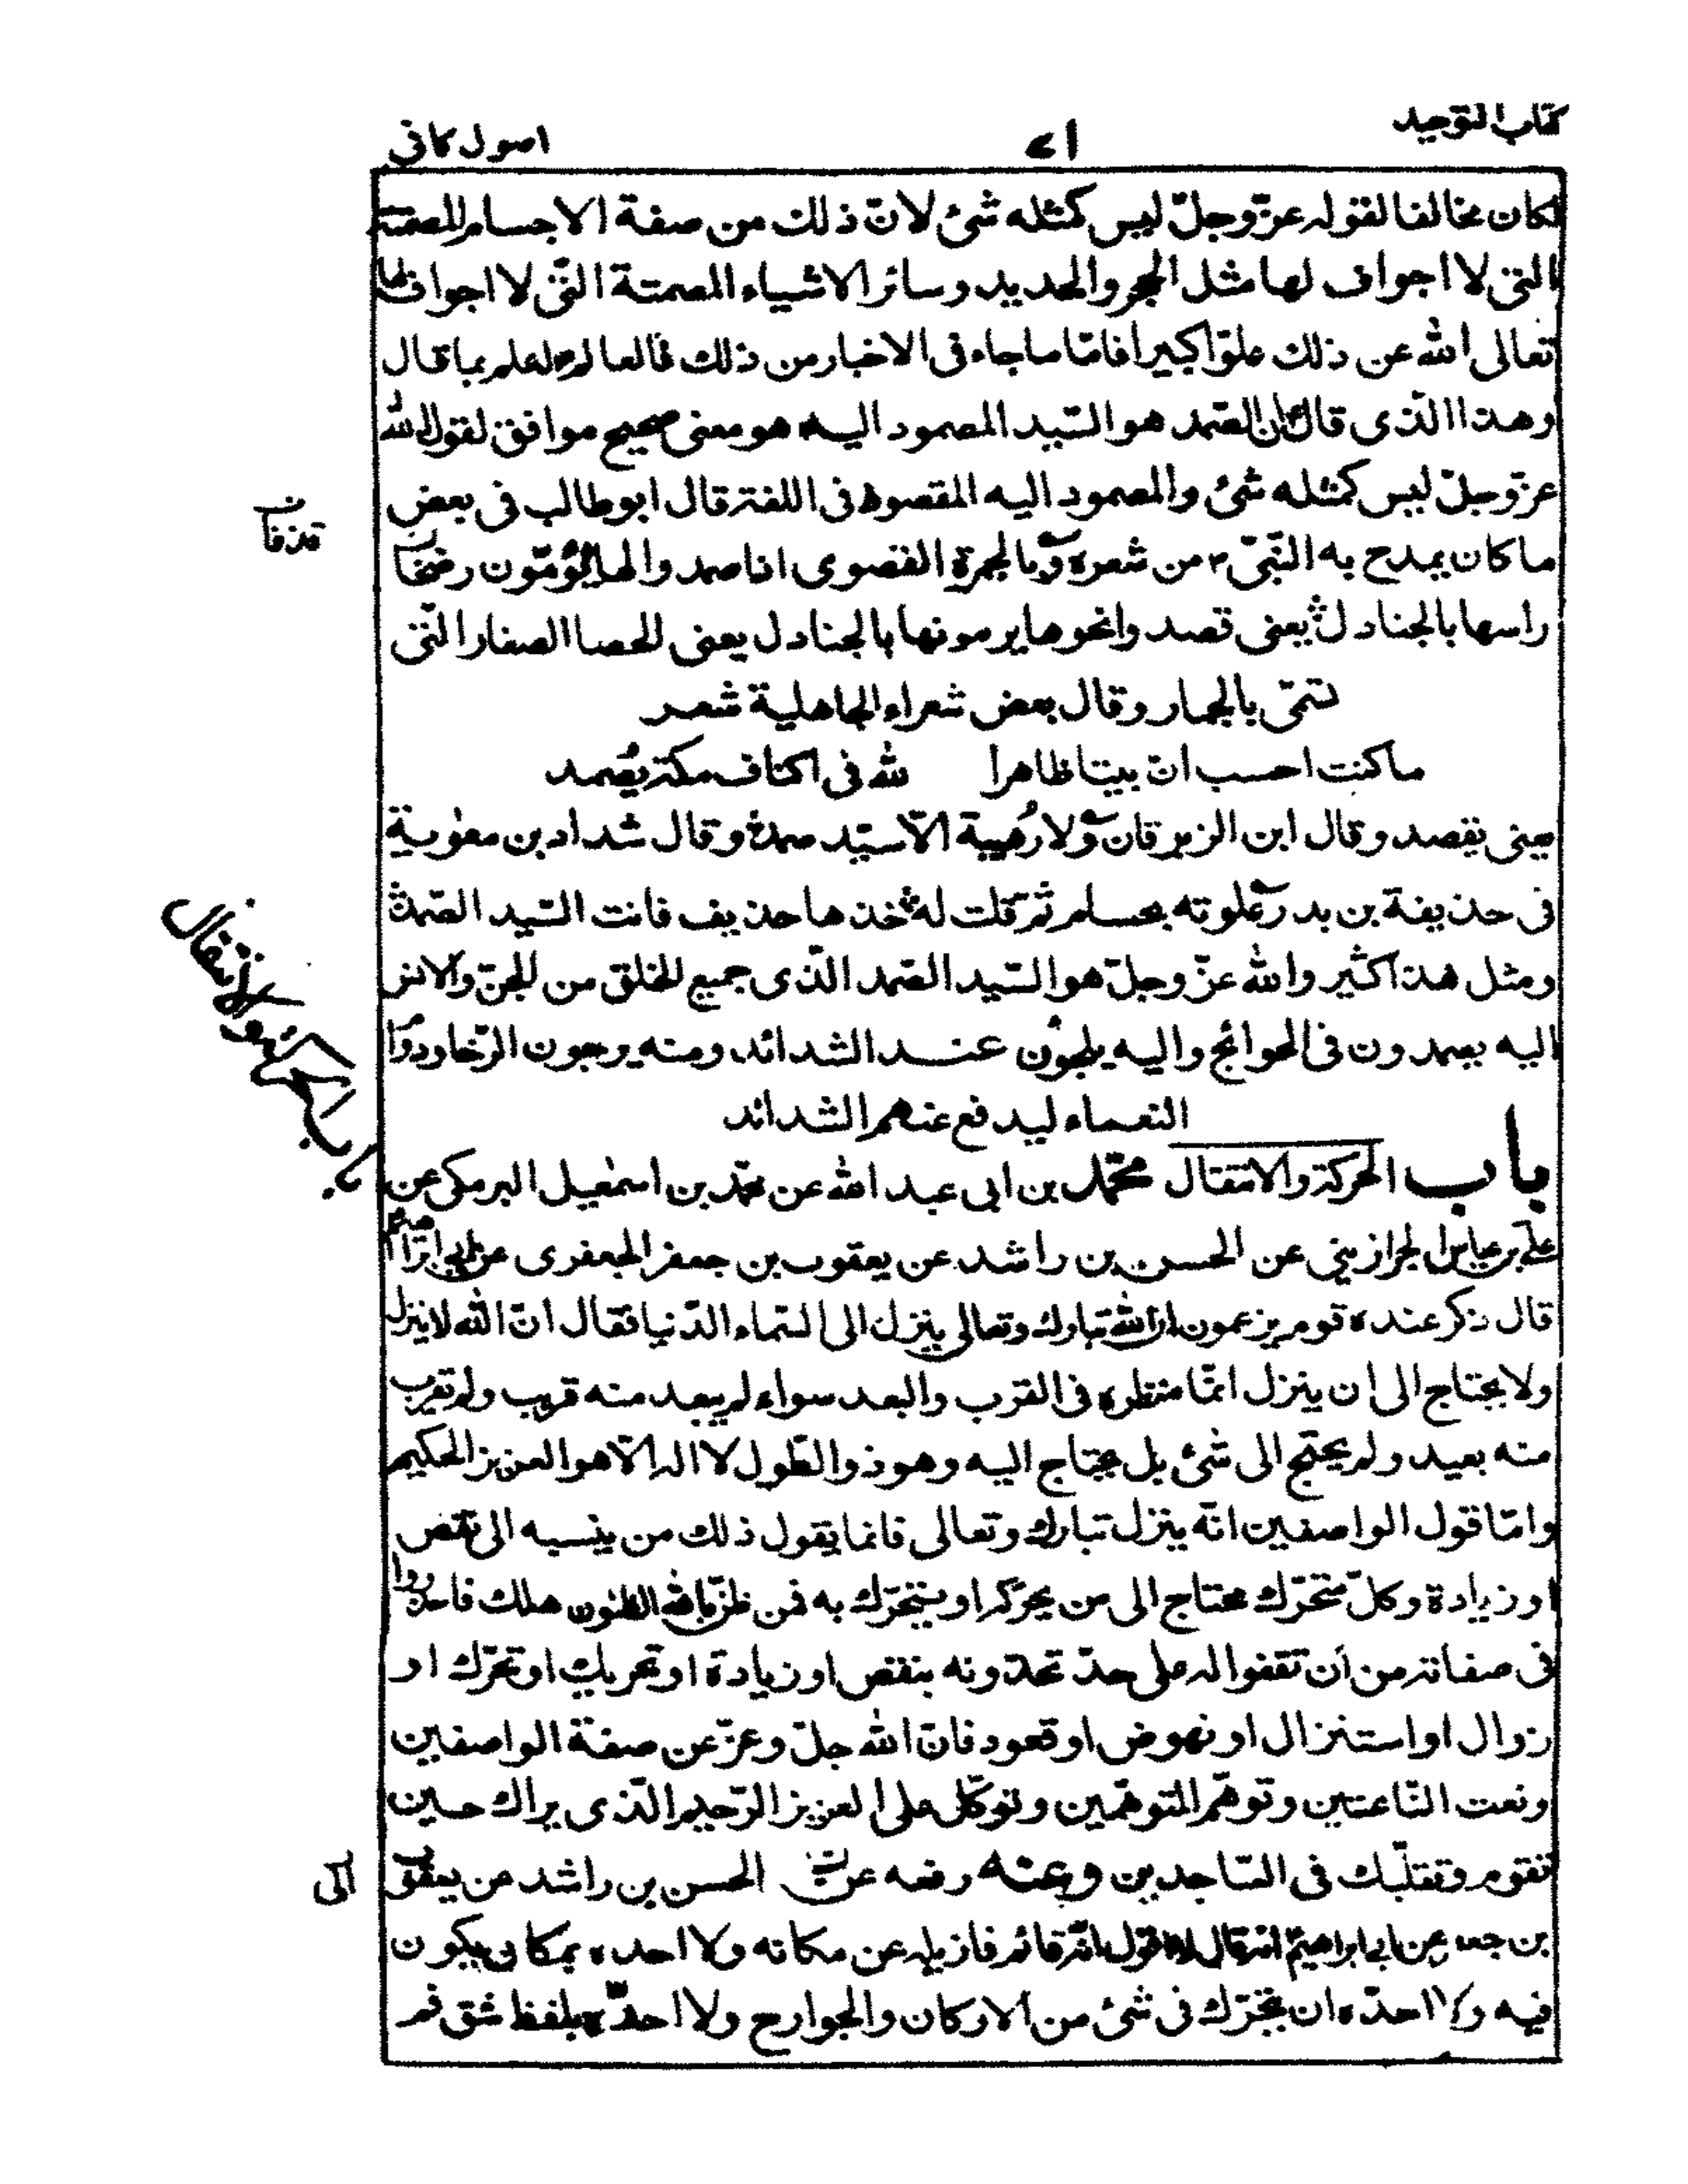 كتاب التوحيد
٧١
اصول كافى
لكان مخالفا لقوله عزّ وجلّ ليس كمثله شئ لانّ ذلك من صفة الاجسام المصمتة
التى لا اجواف لها مثل الحجر والحديد وسائر الاشياء المصمتة التّى لا اجواف لها
تعالى الله عن ذلك علوّا كبيرا فامّا ما جاء فى الاخبار من ذلك فالعالم اعلم بما قال
وهذا الّذى قال ان الصّمد هو السّيد المصمود اليه هو معنى صحيح موافق لقول الله
عزّ وجلّ ليس كمثله شئ والمصمود اليه المقصود فى اللغة قال ابو طالب فى بعض
ما كان يمدح به النّبىّ من شعره وبالجمرة القصوى اذا صمدوا لها يؤمّون رضخا
قذفا
راسها بالجنادل يعنى قصدوا نحوها يرمونها بالجنادل يعنى الحصا الصغار الّتى
تسمّى بالجمار وقال بعض شعراء الجاهلية شعر
ما كنت احسب انّ بيتا ظاهرا لله فى اكناف مكة يُصمد
يعنى يقصد وقال ابن الزبرقان ولا رُهيبة الّا سيّد صمد وقال شداد بن معٰوية
فى حذيفة بن بدر علوته بحسام ثم قلت له خذها حذيف فانت السّيد الصّمد
ومثل هذا كثير والله عزّ وجلّ هو السّيد الصّمد الّذى جميع الخلق من الجنّ والانس
اليه يصمدون فى الحوائج واليه يلجؤن عند الشدائد ومنه يرجون الرّخا ودوام
النعماء ليدفع عنهم الشدائد
باب الحركة والانتقال
باب الحركة والانتقال محمّد بن ابى عبد الله عن محمّد بن اسمٰعيل البرمكى عن
علىّ بن عباس الجراذينى عن الحسن بن راشد عن يعقوب بن جعفر الجعفرى عن ابى ابرا
قال ذكر عنده قوم يزعمون ان الله تبارك وتعالى ينزل الى السّماء الدّنيا فقال انّ الله لا ينزل
ولا يحتاج الى ان ينزل انّما منظره فى القرب والبعد سواء لم يبعد منه قريب ولم يقرب
منه بعيد ولم يحتج الى شئ بل يحتاج اليه وهو ذو الطّول لا اله الّا هو العزيز الحكيم
وامّا قول الواصفين انّه ينزل تبارك وتعالى فانما يقول ذلك من ينسبه الى نقص
او زيادة وكلّ متحرّك محتاج الى من يحرّكه او يتحرّك به فمن ظنّ بالله الظنون هلك فاحذروا
فى صفاته من ان تقفوا له على حدّ تحدّونه بنقص او زيادة او تحريك او تحرّك او
زوال او استنزال او نهوض او قعود فانّ الله جلّ وعزّ عن صفة الواصفين
ونعت النّاعتين وتوهّم المتوهّمين وتوكّل على العزيز الرّحيم الّذى يراك حين
تقوم وتقلّبك فى السّاجدين وعنه رفعه عن الحسن بن راشد عن يعقوب
بن جعفر عن ابى ابراهيم انه قال لا اقول انّه قائم فازيله عن مكانه ولا احده بمكان يكون
فيه ولا احدّه ان يتحرّك فى شئ من الاركان والجوارح ولا احدّه بلفظ شق فم